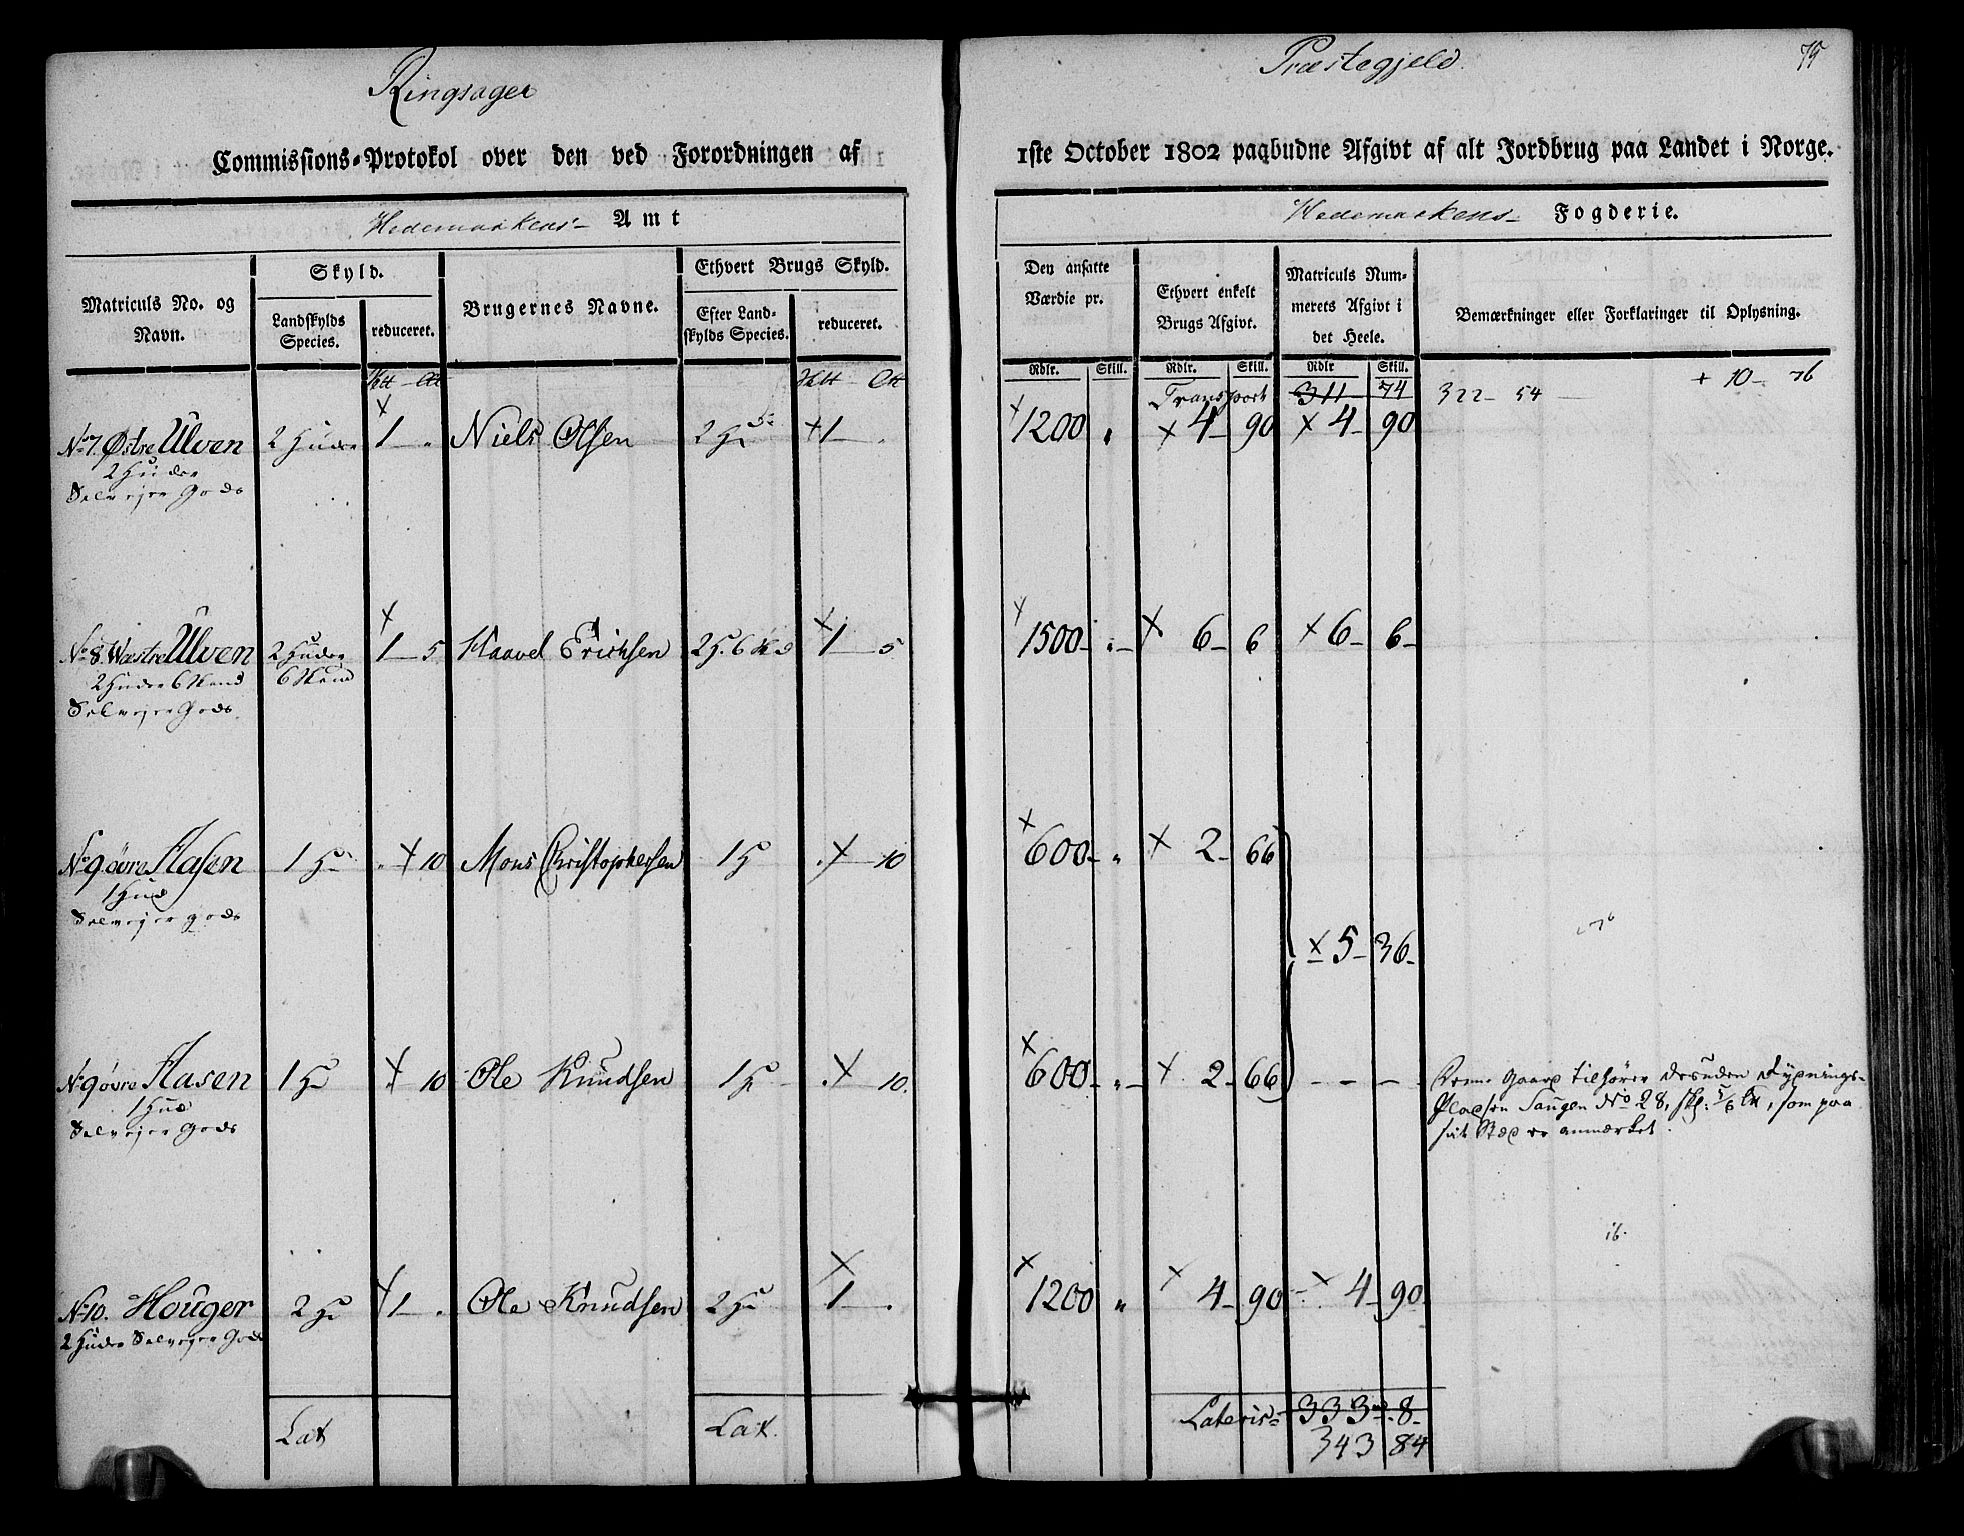 Ringsager
Præstegjeld
75
Commissions-Protokol over den ved Forordningen af
1ste October 1802 paabudne Afgivt af alt Jordbrug paa Landet i Norge.
Hedemarkens- Amt
Hedemarkens- Fogderie.
Matriculs No. og Navn.
Skyld.
Landskylds Species.
reduceret.
Brugernes Navne.
Ethvert Brugs Skyld.
Efter Landskylds Species.
reduceret.
Den ansatte Værdie pr.
Ethvert enkelt Brugs Afgivt.
Matriculs Nummerets Afgivt i det Heele.
Bemærkninger eller Forklaringer til Oplysning.
Rdlr. Skill. Rdlr. Skill. Rdlr Skill.
Transport 311 74 322 - 54 + 10 - 76
No 7. Østre Ulven 2 Huder × 1 - „ Niels Olsen 2 H × 1 - „ × 1200 „ × 4 - 90 × 4 - 90
2 Huder
Selvejer Gods
No 8. Wæstre Ulven 2 Huder × 1 - 5 Haavel Erichsen 2 H. 6 Sk × 1 - 5 × 1500 - „ - × 6 - 6 × 6 - 6 -
2 Huder 6 Skind 6 Skind
Selvejer Gods
No 9 øvre Aasen 1 H „ × 10 Mons Christophersen 1 H „ × 10 × 600 - „ × 2 - 66
1 Hud
Selvejer gods
× 5 - 36 -
No 9 øvre Aasen 1 H × 10 Ole Knudsen 1 H × 10. × 600 - „ - × 2 - 66 - - -
1 Hud
Selvejer Gods
Denne Gaard tilhører desuden Rydnings-
Pladsen Saugen No 28, skl: 5/6 , som paa
sit Sted er anmærket.
No 10. Houger 2 H × 1 - „ Ole Knudsen 2 H × 1 - „ × 1200 „ × 4 - 90 × 4 - 90
2 Huder Selvejer Gods
Lat Lat. Lateris 333 - 8 -
343 84